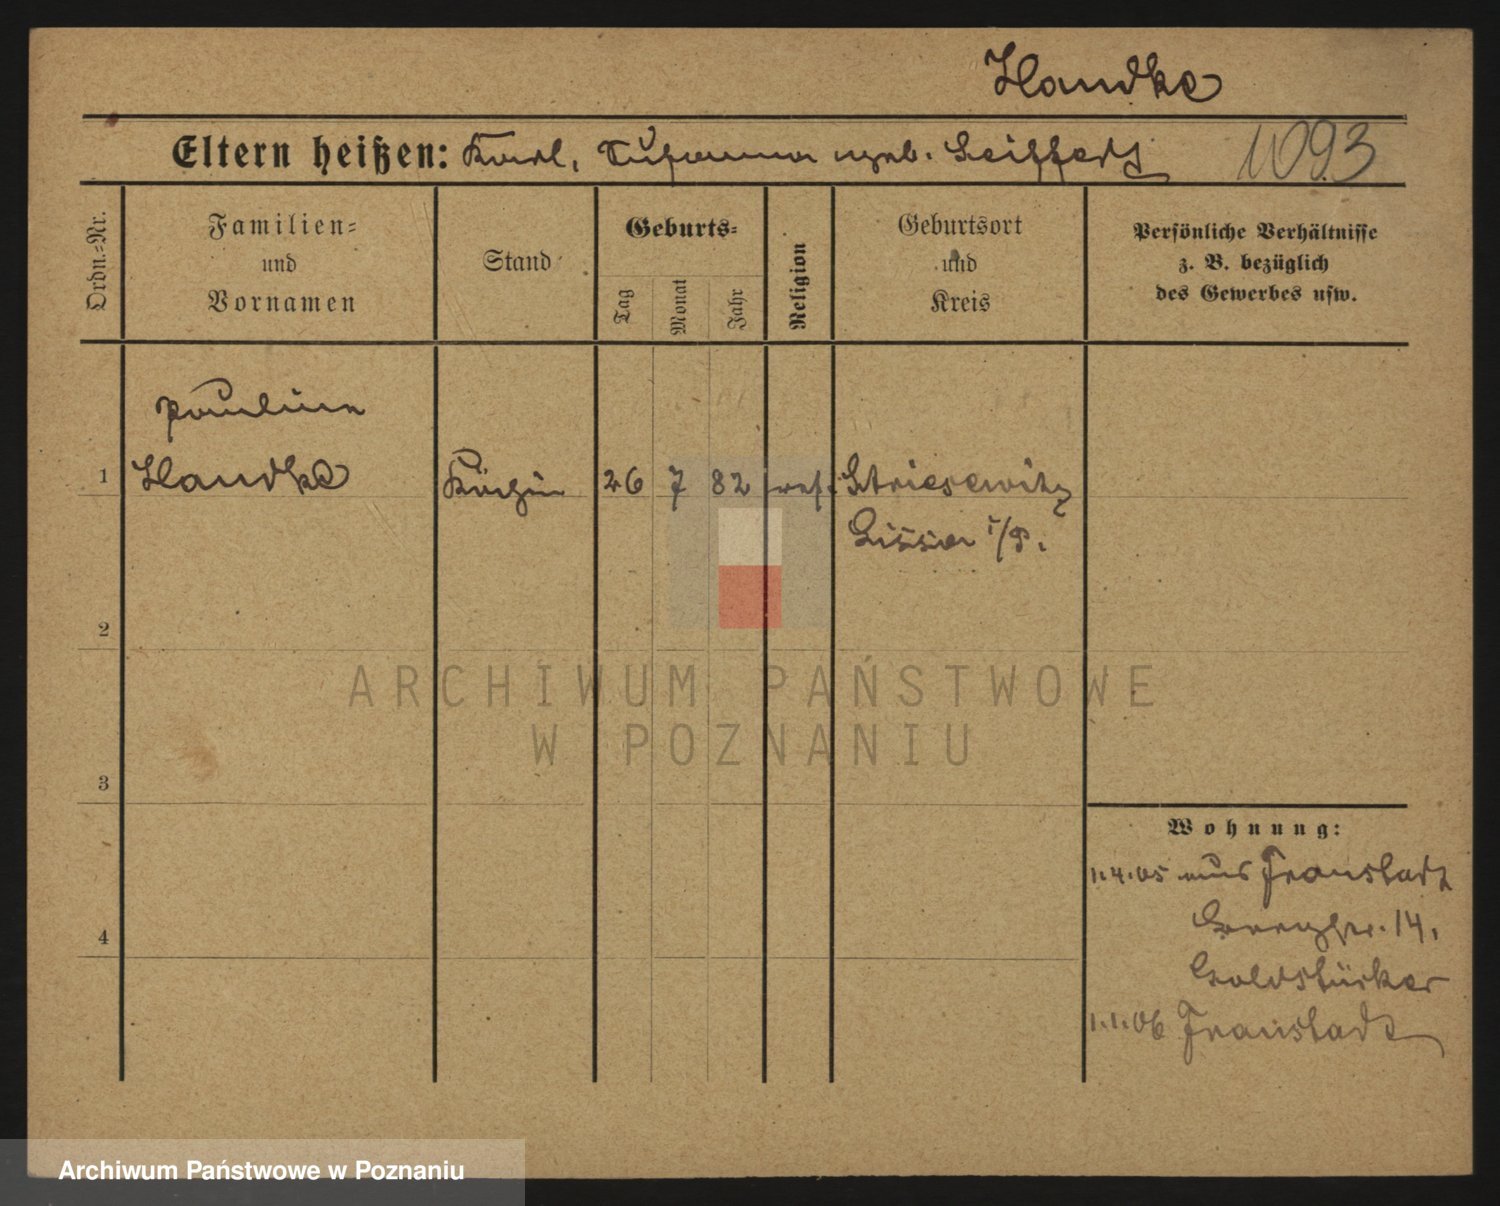 Handke
Eltern heißen: Karl, Susanna geb. Seiffert
1093
Ordn.-Nr.
Familien-
und
Vornamen
Stand
Geburts-
Tag
Monat
Jahr
Religion
Geburtsort
und
Kreis
Persönliche Verhältnisse
z. B. bezüglich
des Gewerbes usw.
Pauline
1 Handke Köchin 26 7 82 Striesewitz
Lissa i/P.
2
3
4
Wohnung:
1.4.05 aus Fraustadt
14.
Goldstücker
1.1.06 Fraustadt
ARCHIWUM PAŃSTWOWE
W POZNANIU
Archiwum Państwowe w Poznaniu